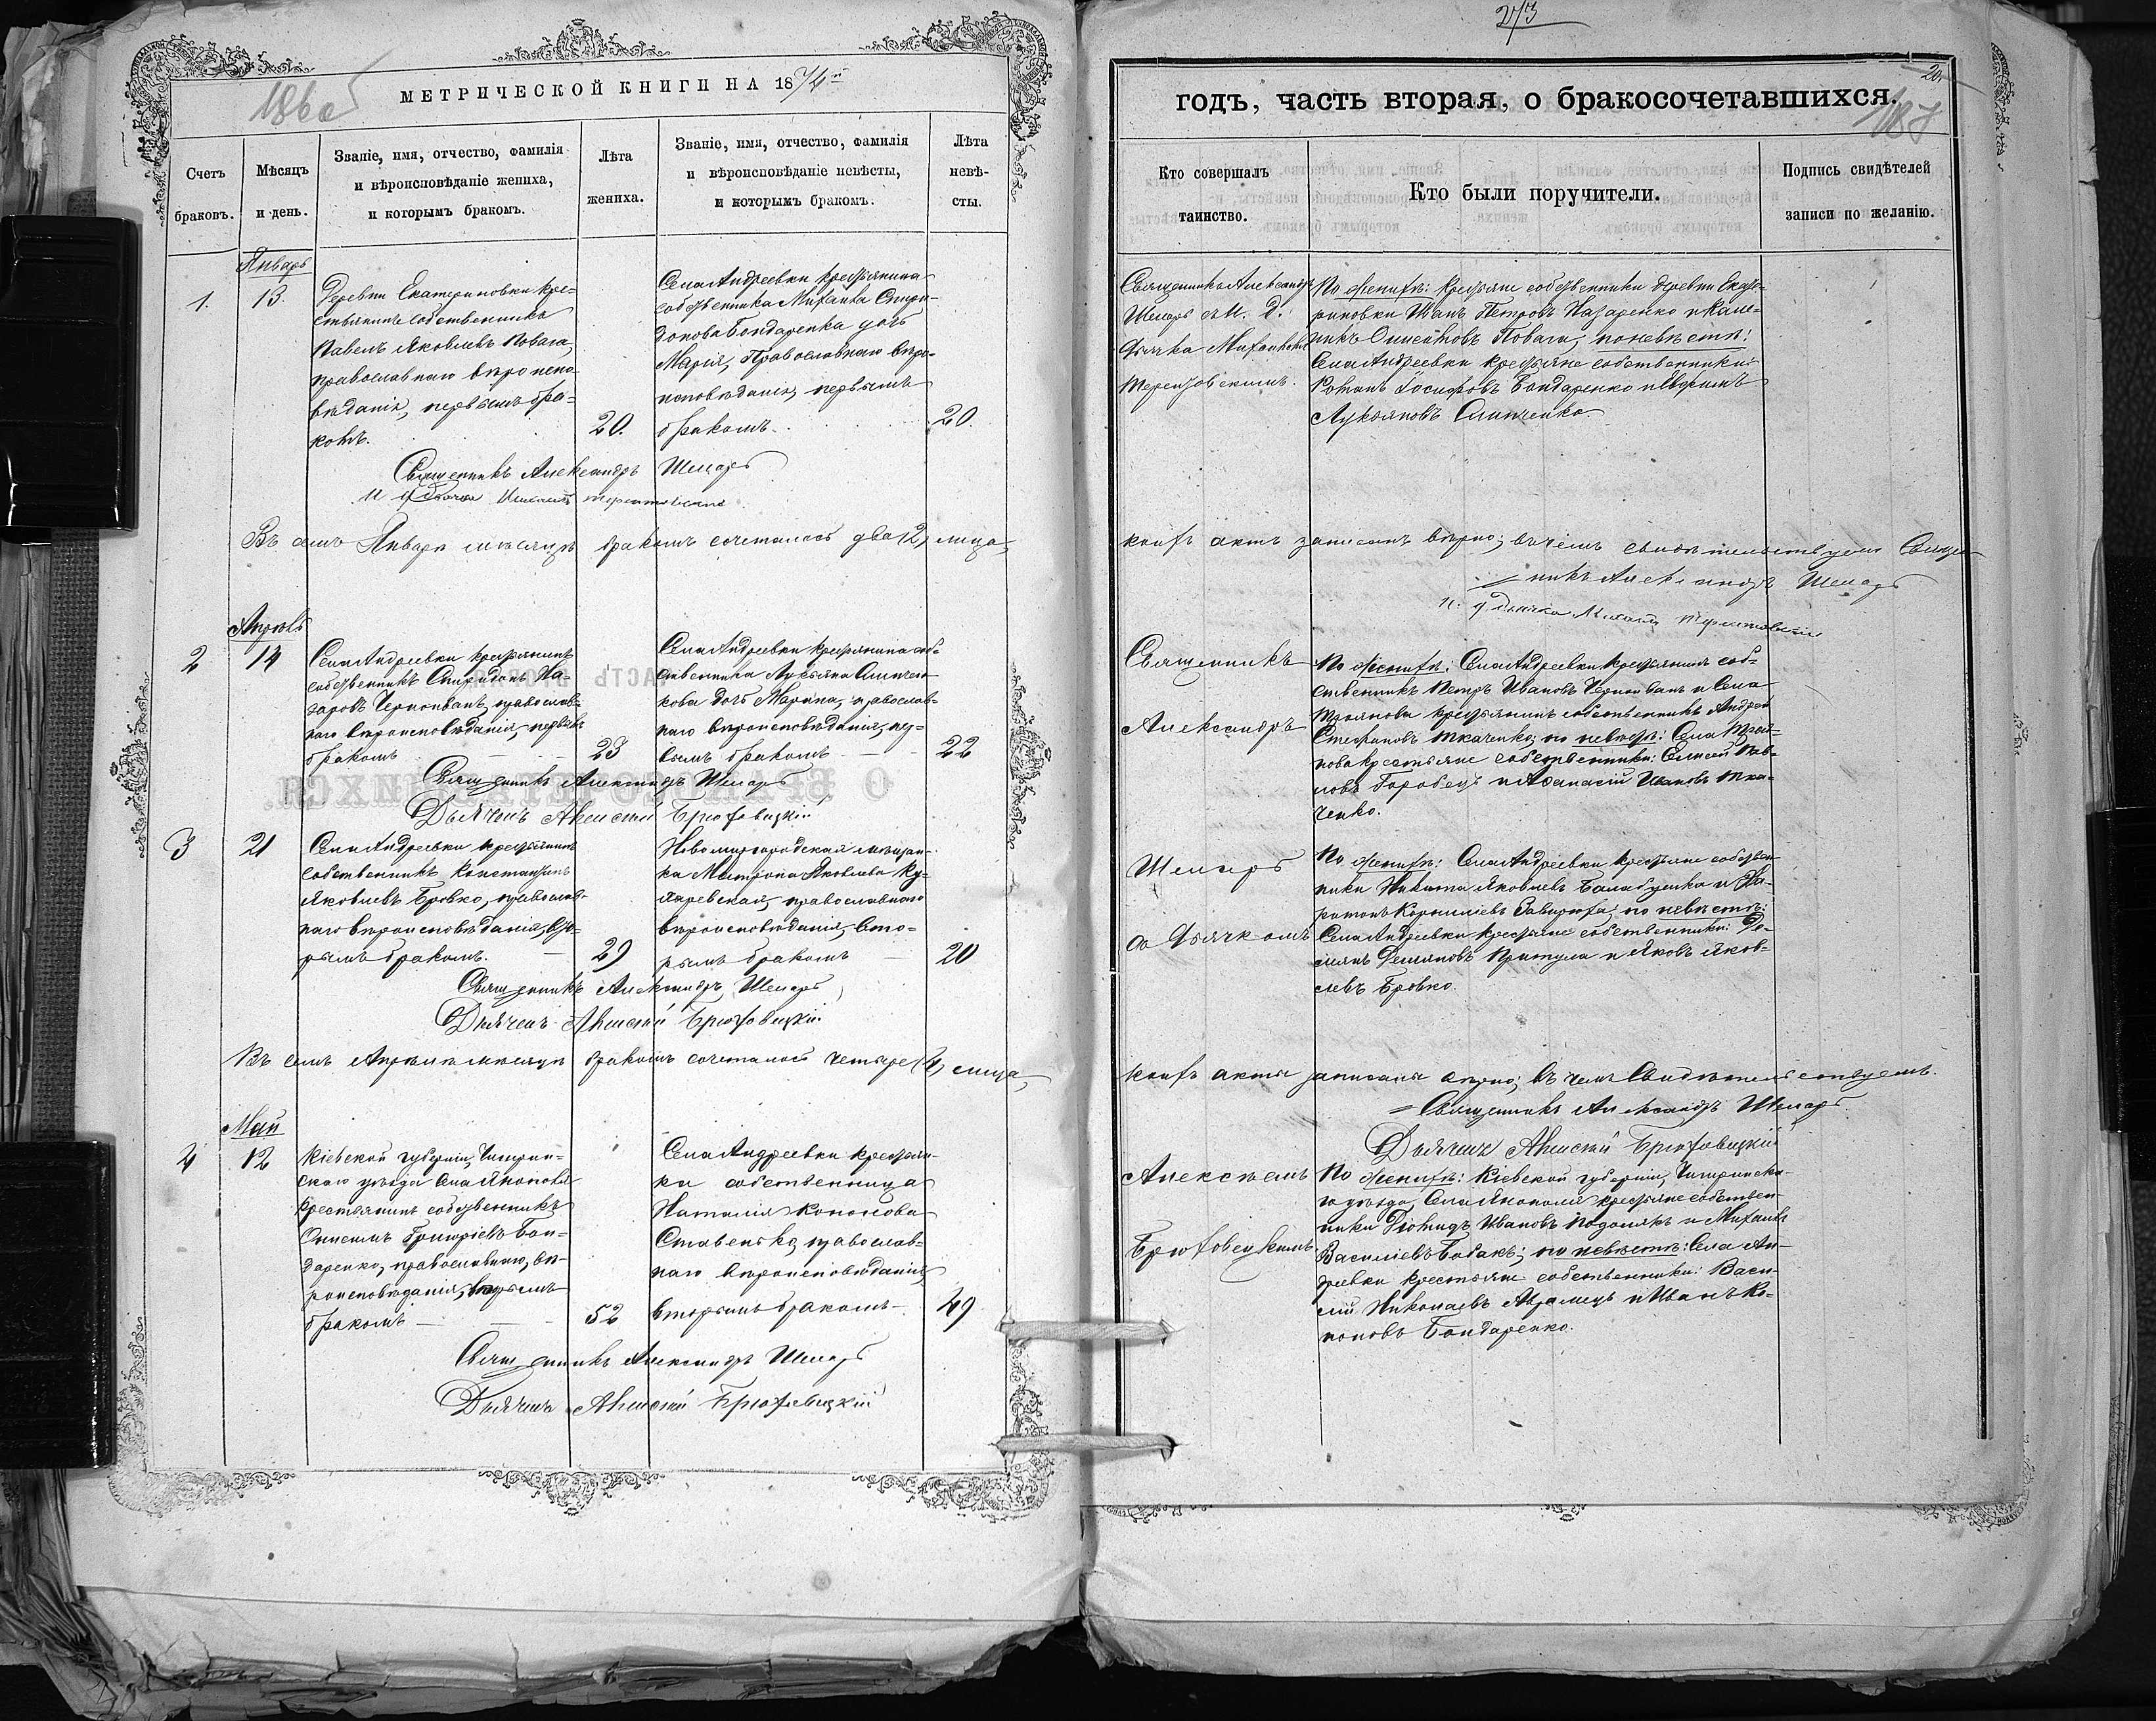 МЕТРИЧЕСКОЙ КНИГИ НА 1874й
186об
Счетъ браковъ.
Мѣсяцъ и день.
Званіе, имя, отчество, фамилія
и вѣроисповѣданіе жениха,
и которымъ бракомъ.
Лѣта жениха.
Званіе, имя, отчество, фамилія
и вѣроисповѣданіе невѣсты,
и которымъ бракомъ.
Лѣта невѣ-
сты.
Январь
1.
13.
Деревни Екатериновки кре=
стьянинъ собственникъ
Павелъ Яковлевъ Повага,
православнаго вѣроиспо-
вѣданія, первымъ бра=
комъ.
20.
Села Андреевки крестьянина
собственника Михаила Спири-
донова Бондаренка дочь
Марія, Православнаго вѣро-
исповѣданія, первымъ
бракомъ.
20.
Священникъ Александръ
И. д. дьячка Михаилъ
Въ семъ Январѣ мѣсяцѣ бракомъ сочеталось два (2) лица,
Апрѣль
2
14
Села Андреевки крестьянинъ
собственникъ Спиридонъ На-
заровъ Черноиванъ, православ-
наго вѣроисповѣданія, первымъ
бракомъ
23
Села Андреевки крестьянина соб-
ственника Лукьяна Слинчен-
кова дочь Марина, православ-
наго вѣроисповѣданія, пер-
вымъ бракомъ
22
Священникъ Александръ
Дьячекъ Алексѣй
3
21
Села Андреевки крестьянинъ
собственникъ Константинъ
Яковлевъ Бровко, православ-
наго вѣроисповѣданія, вто-
рымъ бракомъ.
29
Новомиргородская мѣщан-
ка Матрона Яковлева
православнаго
вѣроисповѣданія, вто-
рымъ бракомъ
20
Священникъ Александръ
Дьячекъ Алексѣй
Въ семъ Апрѣлѣ мѣсяцѣ бракомъ сочеталось четыре (4) лица,
Май
4
12
Кіевской губерніи, Чигирин=
скаго уѣзда Села
крестьянинъ собственникъ
Онисимъ Григоріевъ Бон-
даренко, православнаго вѣ-
роисповѣданія, вторымъ
бракомъ
52
Села Андреевки крестьян-
ка собственница
Наталія Кононова
православ-
наго вѣроисповѣданія,
вторымъ бракомъ
49
Священникъ Александръ
Дьячекъ Алексѣй
273
20.
187
годъ, часть вторая, о бракосочетавшихся.
Кто совершалъ
таинство.
Кто были поручители.
Подпись свидѣтелей
записи по желанію.
Священникъ Александръ
съ И. д.
дьячка Михаиломъ
По женихѣ: крестьяне собственники деревни Екате-
риновки Иванъ Петровъ Назаренко и
Повага; по невѣстѣ:
Села Андреевки крестьяне собственники
Романъ Іосифовъ Бондаренко и Ефимъ
Лукьяновъ Слинченко.
коихъ актъ записанъ вѣрно; въ чемъ свидѣтельствуемъ Священ-
никъ Александръ
И. д. дьячка Михаилъ
Священникъ
Александръ
со дьячкомъ
По женихѣ: Села Андреевки крестьянинъ соб-
ственникъ Петръ Ивановъ Черноиванъ и Села
Троянова крестьянинъ собственникъ Андрей
Стефановъ Ткаченко; по невѣстѣ: Села Троя-
нова крестьяне собственники: Елисей
Горобецъ и Аѳанасій Ивановъ Тка-
ченко.
По женихѣ: Села Андреевки крестьяне собствен-
ники Никита Яковлевъ и Ха-
ритонъ Корниліевъ по невѣстѣ:
Села Андреевки крестьяне собственники: Де-
міянъ Деміяновъ Притула и Яковъ Яков-
левъ Бровко.
коихъ акты записаны вѣрно; въ чемъ свидѣтельствуемъ.
Священникъ Александръ
Дьячекъ Алексѣй
Алексѣемъ
По женихѣ: Кіевской губерніи, Чигиринска-
го уѣзда, Села крестьяне собствен-
ники Діомидъ Ивановъ Подолякъ и Михаилъ
Василіевъ по невѣстѣ: Села Ан-
дреевки крестьяне собственники: Васи-
лій Николаевъ и Иванъ Ко-
ноновъ Бондаренко.